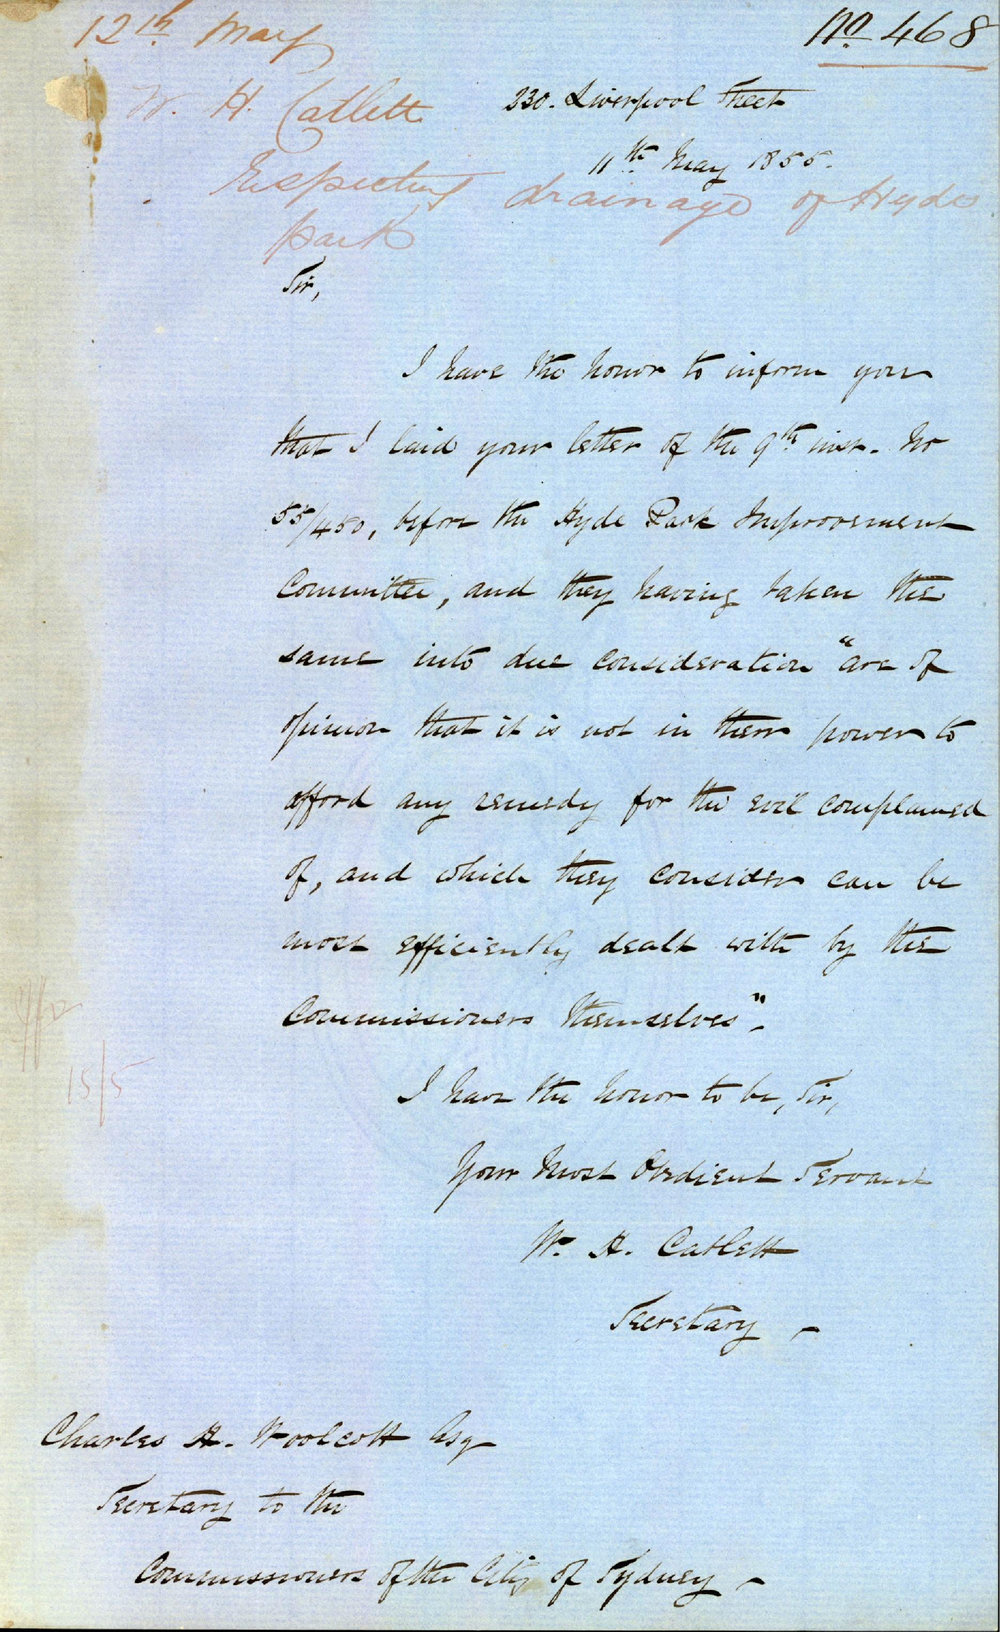 12th May
No 468
W. H. Catlett
230. Liverpool Street
11th May 1855.
Respecting drainage of Hyde
park
Sir,
I have the honor to inform you
that I laid your letter of the 9th inst. No
55/450, before the Hyde Park Improvement
Committee, and they having taken the
same into due consideration "are of
opinion that it is not in their power to
afford any remedy for the evil complained
of, and which they consider can be
most efficiently dealt with by the
Commissioners themselves".
I have the honor to be, Sir,
Your Most Obedient Servant
W. H. Catlett
Secretary
15/5
Charles H. Woolcott Esq
Secretary to the
Commissioners of the City of Sydney